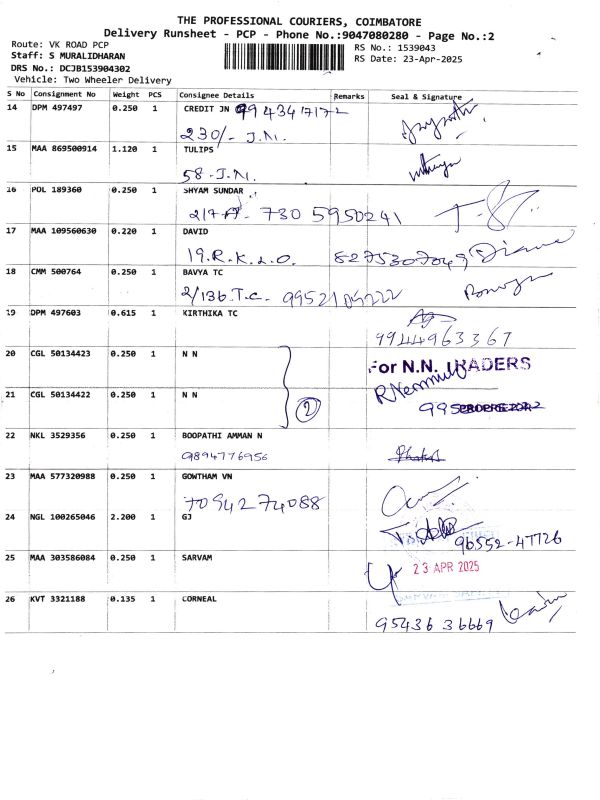 THE PROFESSIONAL COURIERS, COIMBATORE
Delivery Runsheet - PCP - Phone No.:9047080280 - Page No.:2
Route: VK ROAD PCP
Staff: S MURALIDHARAN
DRS No.: DCJB153904302
Vehicle: Two Wheeler Delivery
RS No.: 1539043
RS Date: 23-Apr-2025
S No Consignment No Weight PCS Consignee Details Remarks Seal & Signature
14 DPM 497497 0.250 1 CREDIT JN 9943417172
230/- J.N.
15 MAA 869500914 1.120 1 TULIPS
58-J.N.
16 POL 189360 0.250 1 SHYAM SUNDAR
730 5950241
17 MAA 109560630 0.220 1 DAVID
19.R.K.L.O. 8275307049
18 CMM 500764 0.250 1 BAVYA TC
2/136.T.C. 9952105222
19 DPM 497603 0.615 1 KIRTHIKA TC
9944963367
20 CGL 50134423 0.250 1 N N
For N.N. TRADERS
21 CGL 50134422 0.250 1 N N
2
PROPRIETOR
22 NKL 3529356 0.250 1 BOOPATHI AMMAN N
9894776956
23 MAA 577320988 0.250 1 GOWTHAM VN
7094274088
24 NGL 100265046 2.200 1 GJ
96552-47726
25 MAA 303586084 0.250 1 SARVAM
23 APR 2025
26 KVT 3321188 0.135 1 CORNEAL
95436 36669